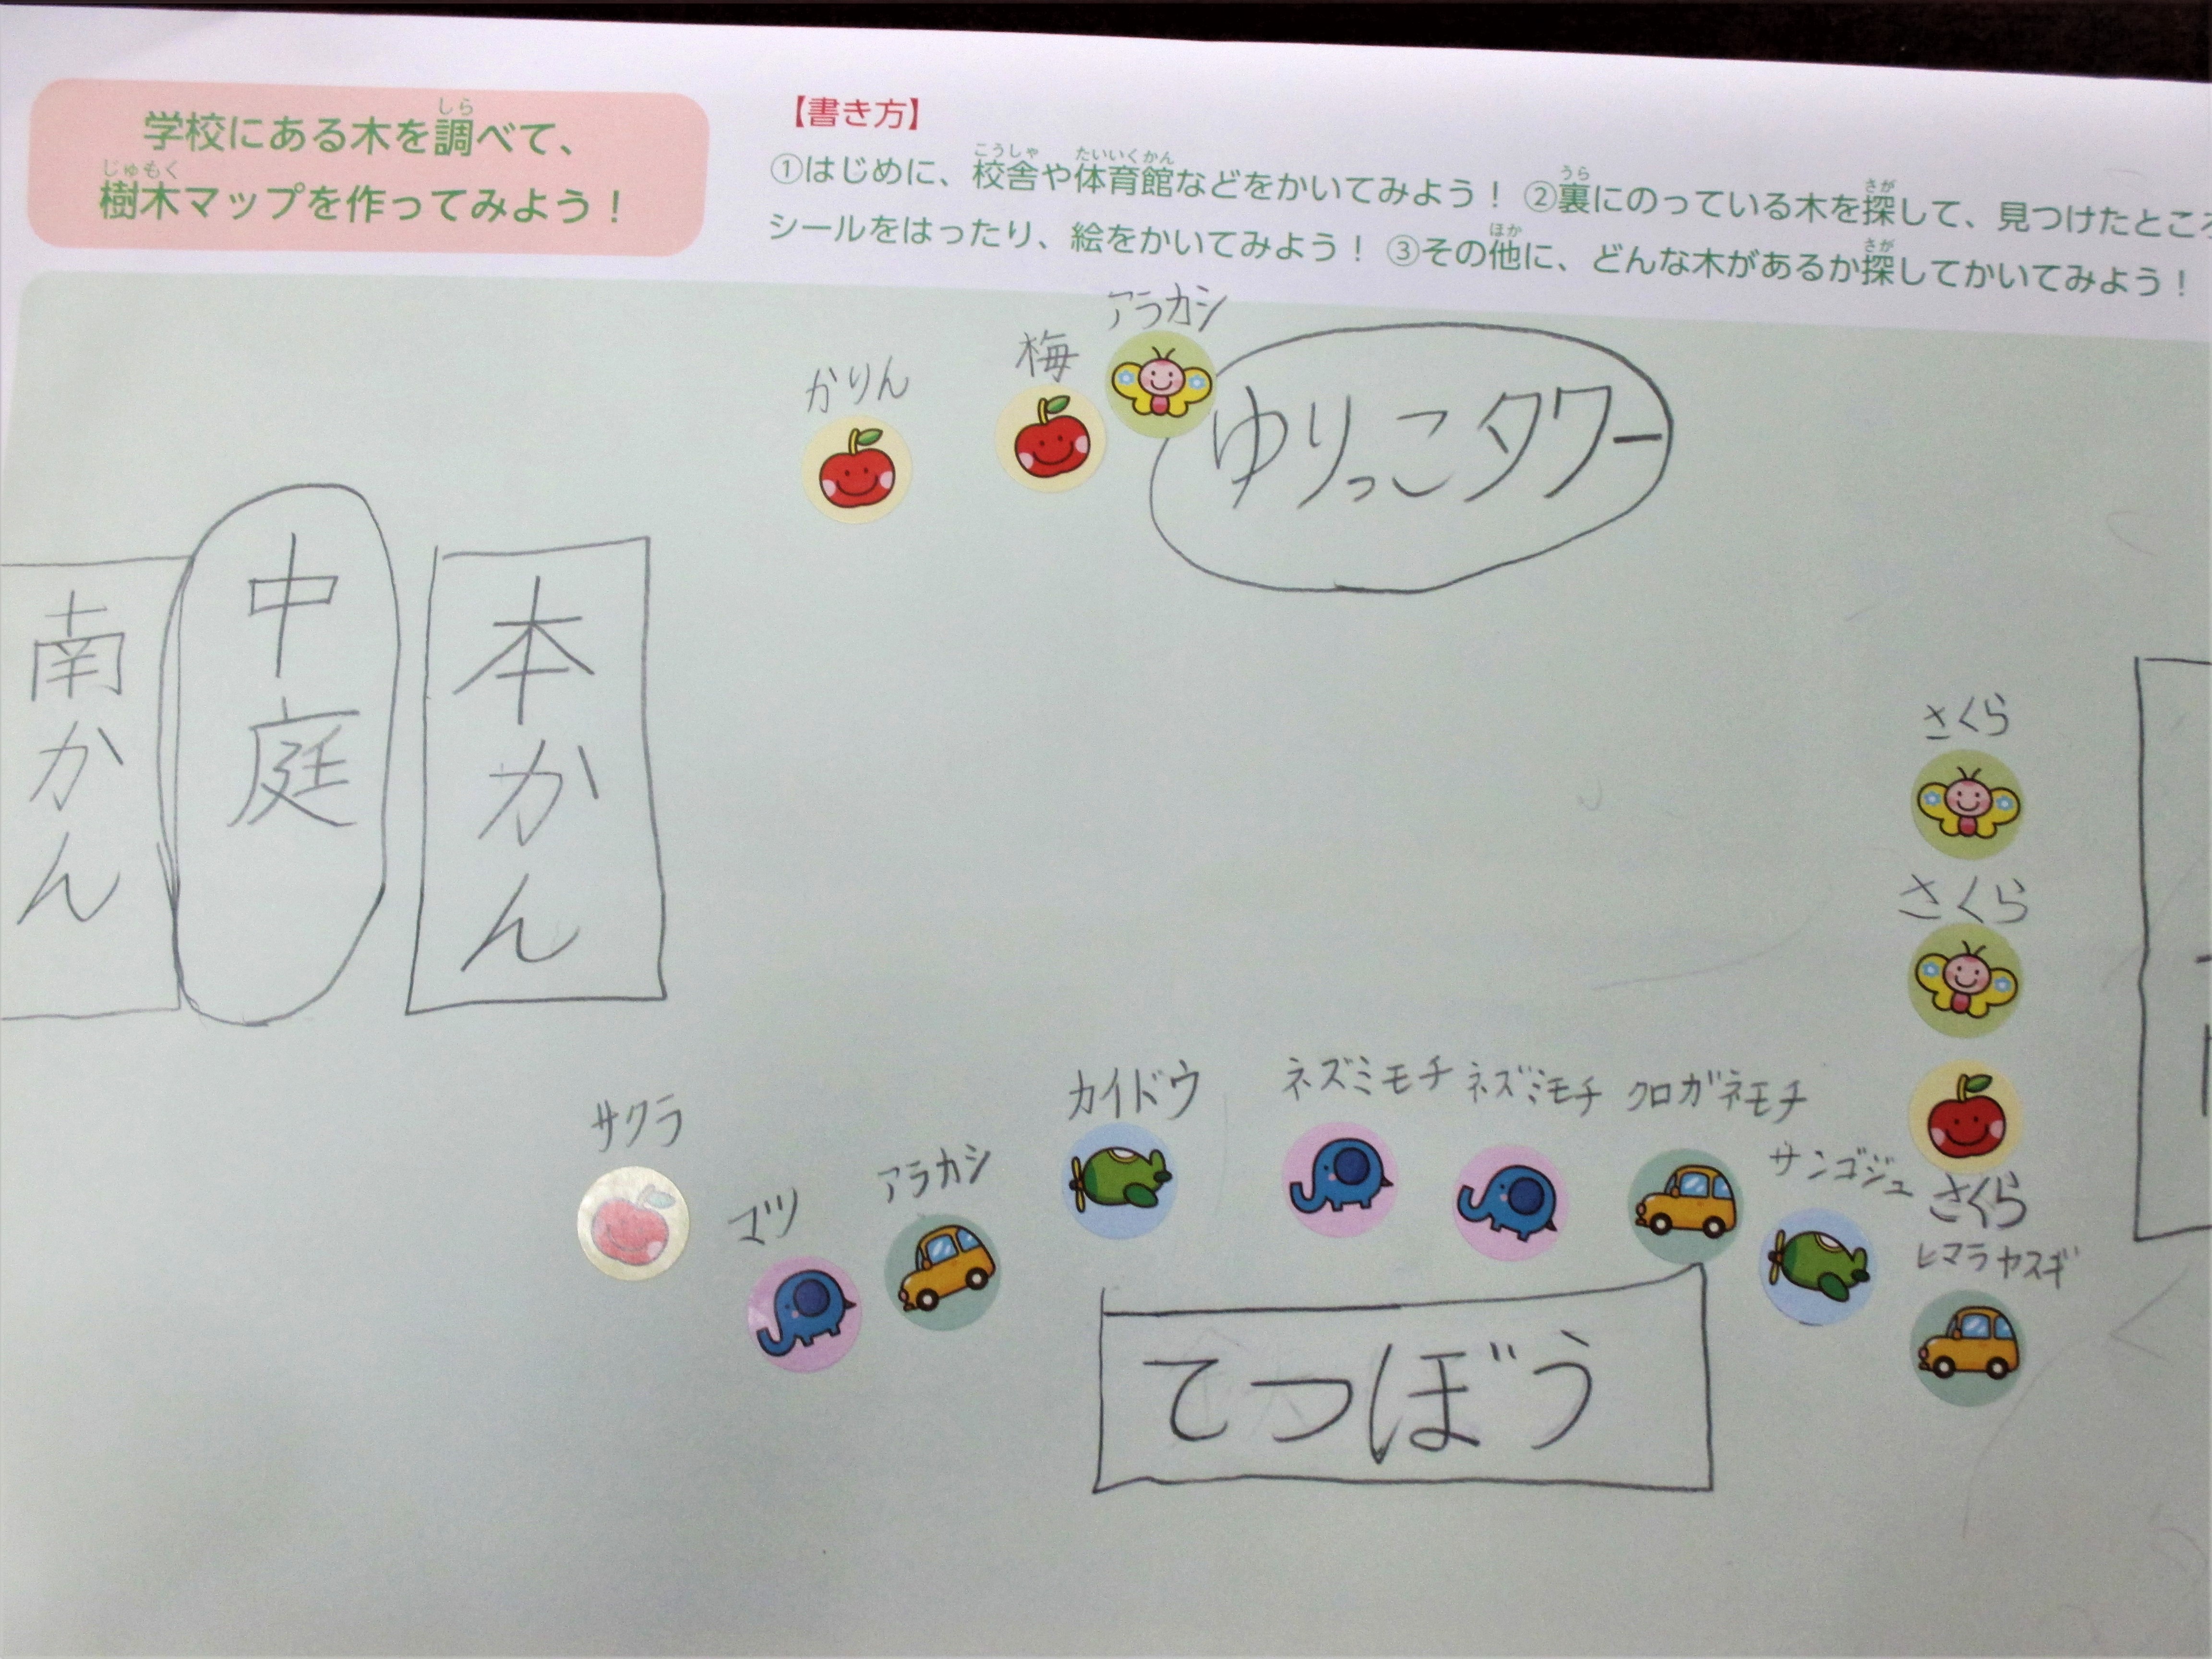 学校にある木を調べて、
樹木マップを作ってみよう！
【書き方】
①はじめに、校舎や体育館などをかいてみよう！ ②裏にのっている木を探して、見つけたところ
シールをはったり、絵をかいてみよう！ ③その他に、どんな木があるか探してかいてみよう！
アラカシ
梅
かりん
ゆりっこタワー
南かん
中庭
本かん
さくら
さくら
カイドウ
ネズミモチ
ネズミモチ
クロガネモチ
サクラ
マツ
アラカシ
サンゴジュ
さくら
ヒマラヤスギ
てつぼう